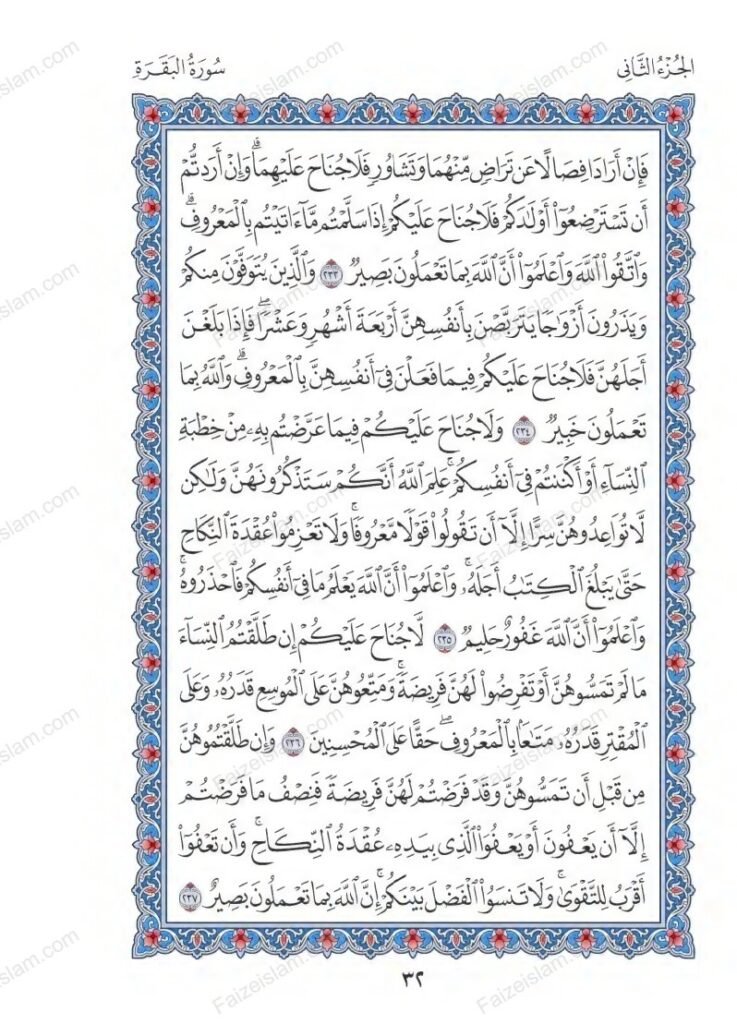 الجُزْءُ الثَّانِى
سُورَةُ البَقَرَةِ
فَإِنْ أَرَادَا فِصَالًا عَن تَرَاضٍ مِّنْهُمَا وَتَشَاوُرٍ فَلَا جُنَاحَ عَلَيْهِمَا ۗ وَإِنْ أَرَدتُّمْ
أَن تَسْتَرْضِعُوٓا۟ أَوْلَٰدَكُمْ فَلَا جُنَاحَ عَلَيْكُمْ إِذَا سَلَّمْتُم مَّآ ءَاتَيْتُم بِٱلْمَعْرُوفِ ۗ
وَٱتَّقُوا۟ ٱللَّهَ وَٱعْلَمُوٓا۟ أَنَّ ٱللَّهَ بِمَا تَعْمَلُونَ بَصِيرٌ ٢٣٣ وَٱلَّذِينَ يُتَوَفَّوْنَ مِنكُمْ
وَيَذَرُونَ أَزْوَٰجًا يَتَرَبَّصْنَ بِأَنفُسِهِنَّ أَرْبَعَةَ أَشْهُرٍ وَعَشْرًا ۖ فَإِذَا بَلَغْنَ
أَجَلَهُنَّ فَلَا جُنَاحَ عَلَيْكُمْ فِيمَا فَعَلْنَ فِىٓ أَنفُسِهِنَّ بِٱلْمَعْرُوفِ ۗ وَٱللَّهُ بِمَا
تَعْمَلُونَ خَبِيرٌ ٢٣٤ وَلَا جُنَاحَ عَلَيْكُمْ فِيمَا عَرَّضْتُم بِهِۦ مِنْ خِطْبَةِ
ٱلنِّسَآءِ أَوْ أَكْنَنتُمْ فِىٓ أَنفُسِكُمْ ۚ عَلِمَ ٱللَّهُ أَنَّكُمْ سَتَذْكُرُونَهُنَّ وَلَٰكِن
لَّا تُوَاعِدُوهُنَّ سِرًّا إِلَّآ أَن تَقُولُوا۟ قَوْلًا مَّعْرُوفًا ۚ وَلَا تَعْزِمُوا۟ عُقْدَةَ ٱلنِّكَاحِ
حَتَّىٰ يَبْلُغَ ٱلْكِتَٰبُ أَجَلَهُۥ ۚ وَٱعْلَمُوٓا۟ أَنَّ ٱللَّهَ يَعْلَمُ مَا فِىٓ أَنفُسِكُمْ فَٱحْذَرُوهُ ۚ
وَٱعْلَمُوٓا۟ أَنَّ ٱللَّهَ غَفُورٌ حَلِيمٌ ٢٣٥ لَّا جُنَاحَ عَلَيْكُمْ إِن طَلَّقْتُمُ ٱلنِّسَآءَ
مَا لَمْ تَمَسُّوهُنَّ أَوْ تَفْرِضُوا۟ لَهُنَّ فَرِيضَةً ۚ وَمَتِّعُوهُنَّ عَلَى ٱلْمُوسِعِ قَدَرُهُۥ وَعَلَى
ٱلْمُقْتِرِ قَدَرُهُۥ مَتَٰعًۢا بِٱلْمَعْرُوفِ ۖ حَقًّا عَلَى ٱلْمُحْسِنِينَ ٢٣٦ وَإِن طَلَّقْتُمُوهُنَّ
مِن قَبْلِ أَن تَمَسُّوهُنَّ وَقَدْ فَرَضْتُمْ لَهُنَّ فَرِيضَةً فَنِصْفُ مَا فَرَضْتُمْ
إِلَّآ أَن يَعْفُونَ أَوْ يَعْفُوَا۟ ٱلَّذِى بِيَدِهِۦ عُقْدَةُ ٱلنِّكَاحِ ۚ وَأَن تَعْفُوٓا۟
أَقْرَبُ لِلتَّقْوَىٰ ۚ وَلَا تَنسَوُا۟ ٱلْفَضْلَ بَيْنَكُمْ ۚ إِنَّ ٱللَّهَ بِمَا تَعْمَلُونَ بَصِيرٌ ٢٣٧
٣٢
Faizeislam.com